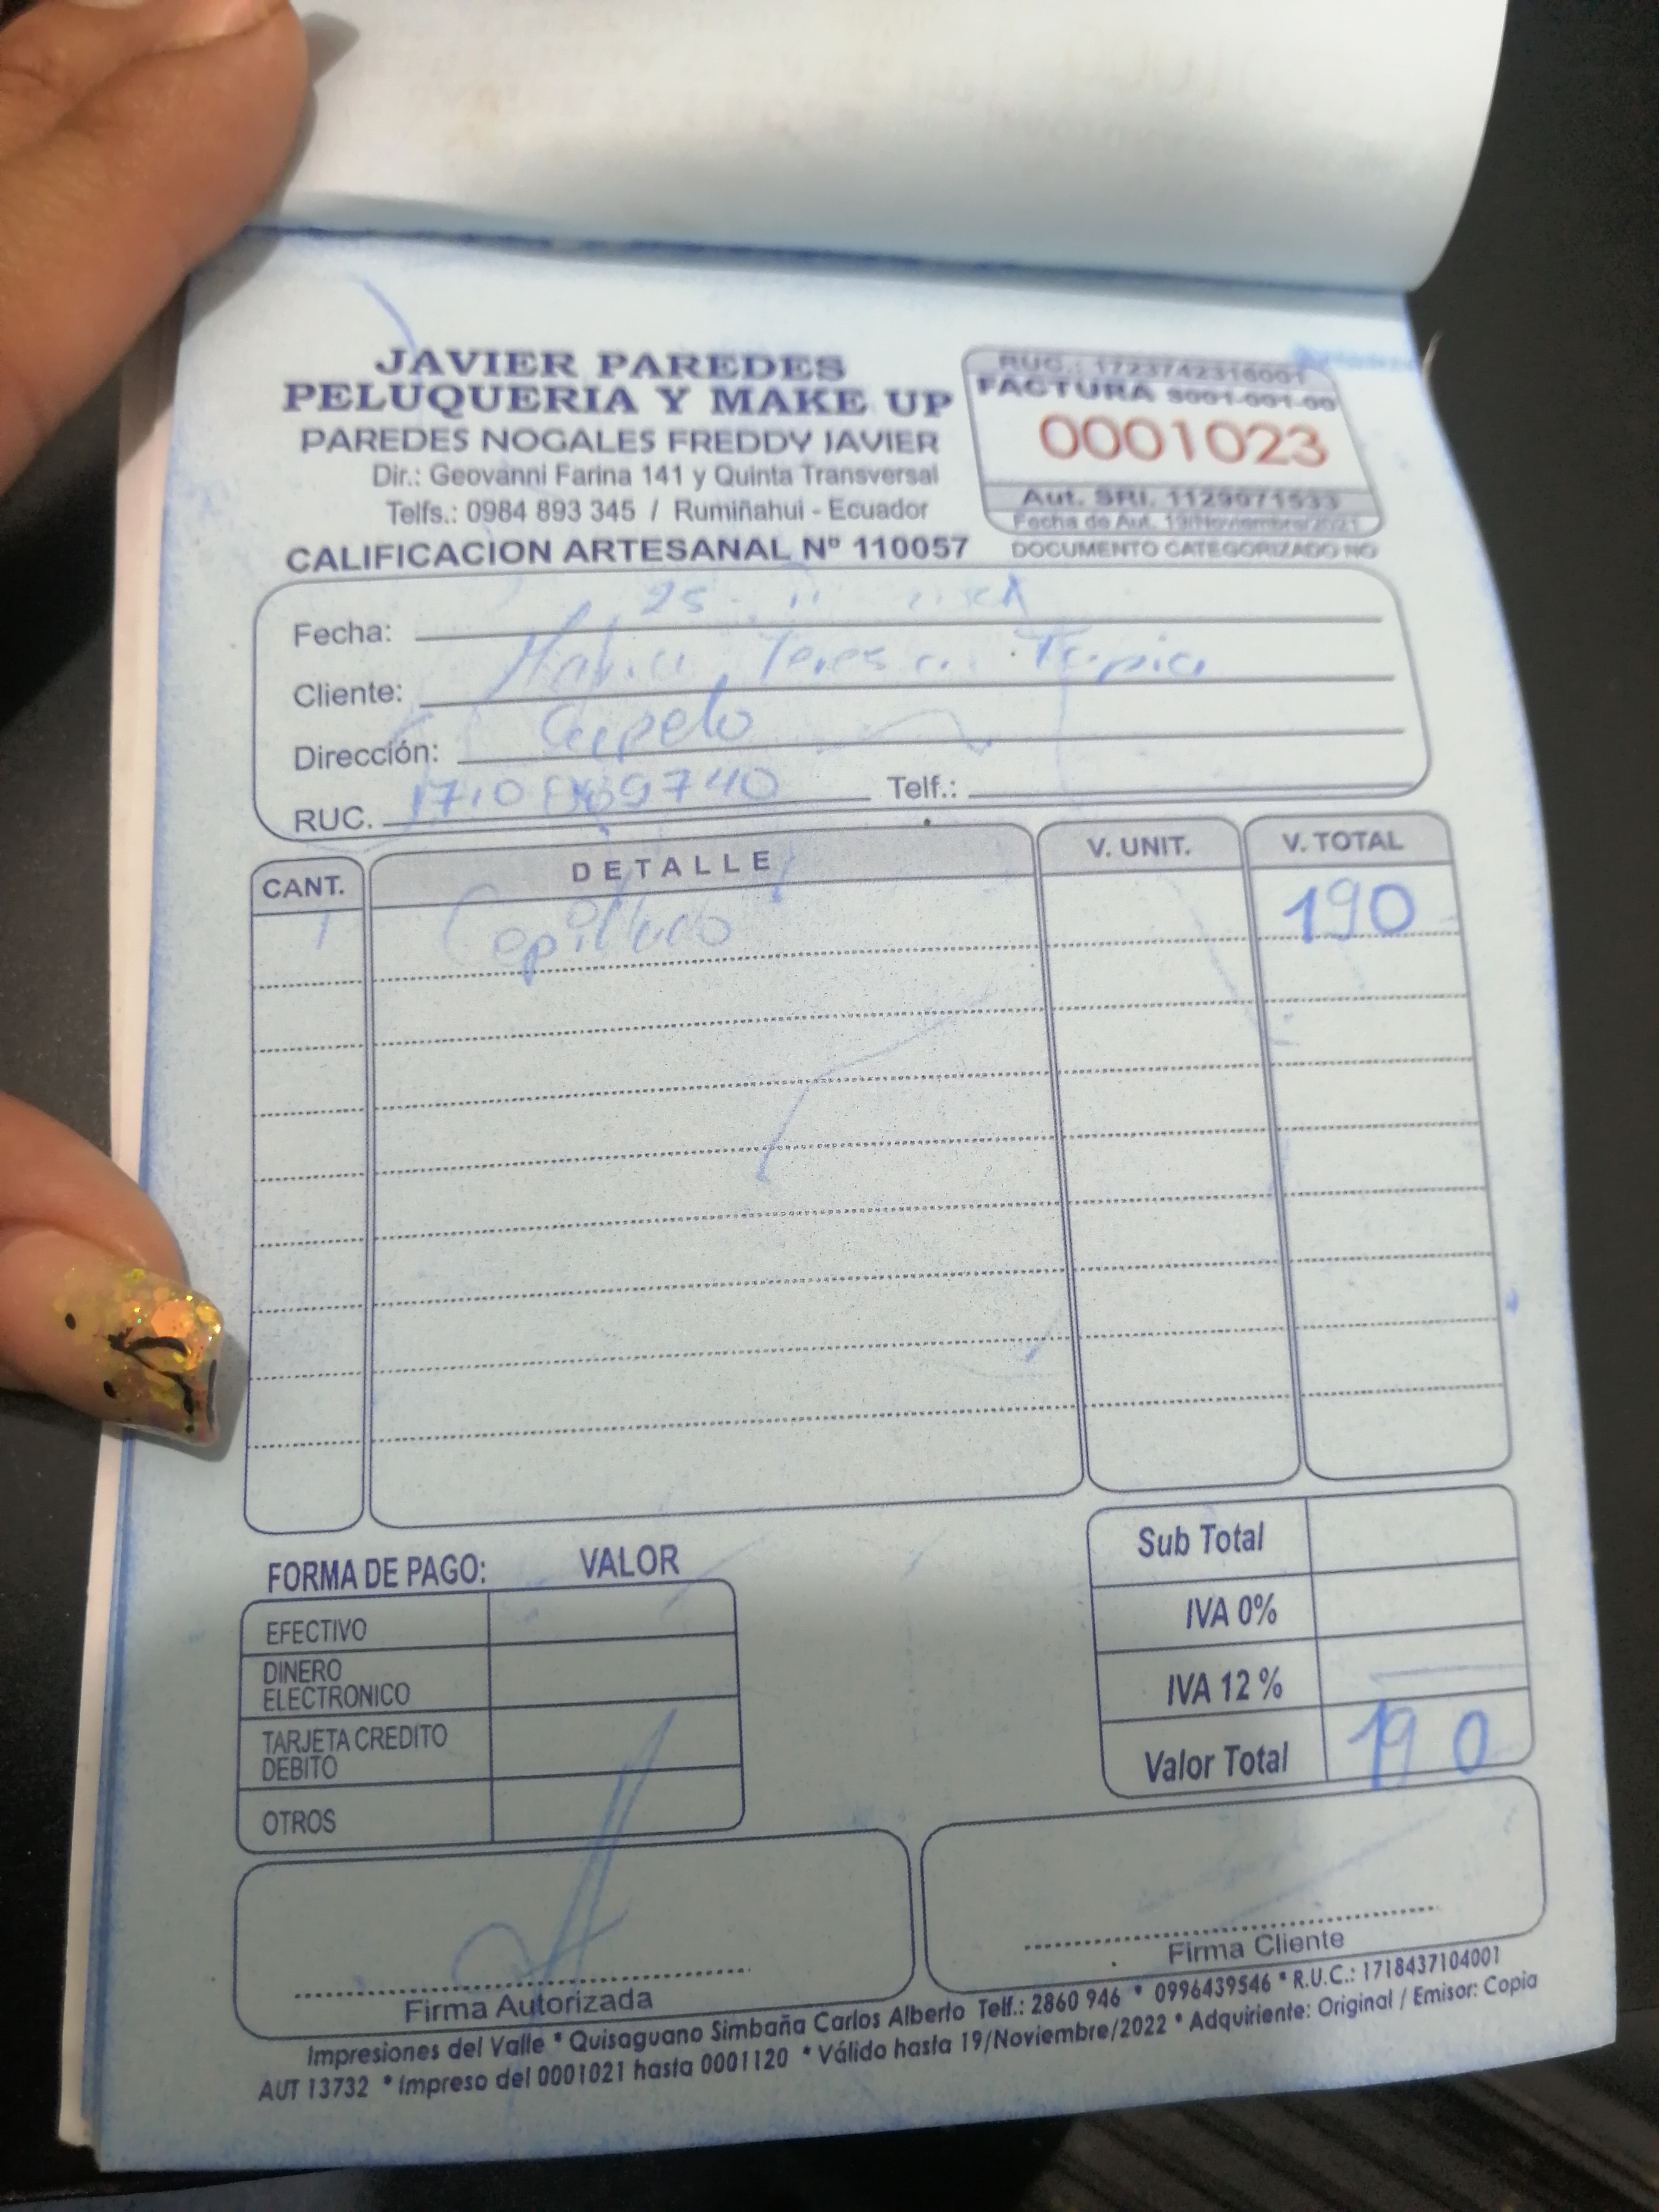 JAVIER PAREDES
PELUQUERIA Y MAKE UP
PAREDES NOGALES FREDDY JAVIER
Dir.: Geovanni Farina 141 y Quinta Transversal
Telfs.: 0984 893 345 / Rumiñahui - Ecuador
CALIFICACION ARTESANAL Nº 110057
RUC.: 1723742316001
FACTURA S001-001-00
0001023
Aut. SRI. 1129971533
Fecha de Aut. 19/Noviembre/2021
DOCUMENTO CATEGORIZADO NO
Fecha: 25
Cliente: Maria Teresa Tapia
Dirección: Capelo
RUC. Telf.:
CANT. DETALLE V. UNIT. V. TOTAL
1 Cepillado 190
FORMA DE PAGO: VALOR
EFECTIVO
DINERO
ELECTRONICO
TARJETA CREDITO
DEBITO
OTROS
Sub Total
IVA 0%
IVA 12 %
Valor Total 190
Firma Autorizada
Firma Cliente
Impresiones del Valle * Quisaguano Simbaña Carlos Alberto Telf.: 2860 946 * 0996439546 * R.U.C.: 1718437104001
AUT 13732 * Impreso del 0001021 hasta 0001120 * Válido hasta 19/Noviembre/2022 * Adquiriente: Original / Emisor: Copia